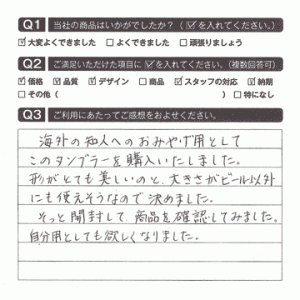 Q1 当社の商品はいかがでしたか?(☑を入れてください。)
☑大変よくできました □よくできました □頑張りましょう
Q2 ご満足いただけた項目に☑を入れてください。(複数回答可)
☑価格 ☑品質 ☑デザイン □商品 ☑スタッフの対応 ☑納期
□その他( ) □特になし
Q3 ご利用にあたってご感想をおよせください。
海外の知人へのおみやげ用として
このタンブラーを購入いたしました。
形がとても美しいのと、大きさがビール以外
にも使えそうなので決めました。
そっと開封して、商品を確認してみました。
自分用としても欲しくなりました。